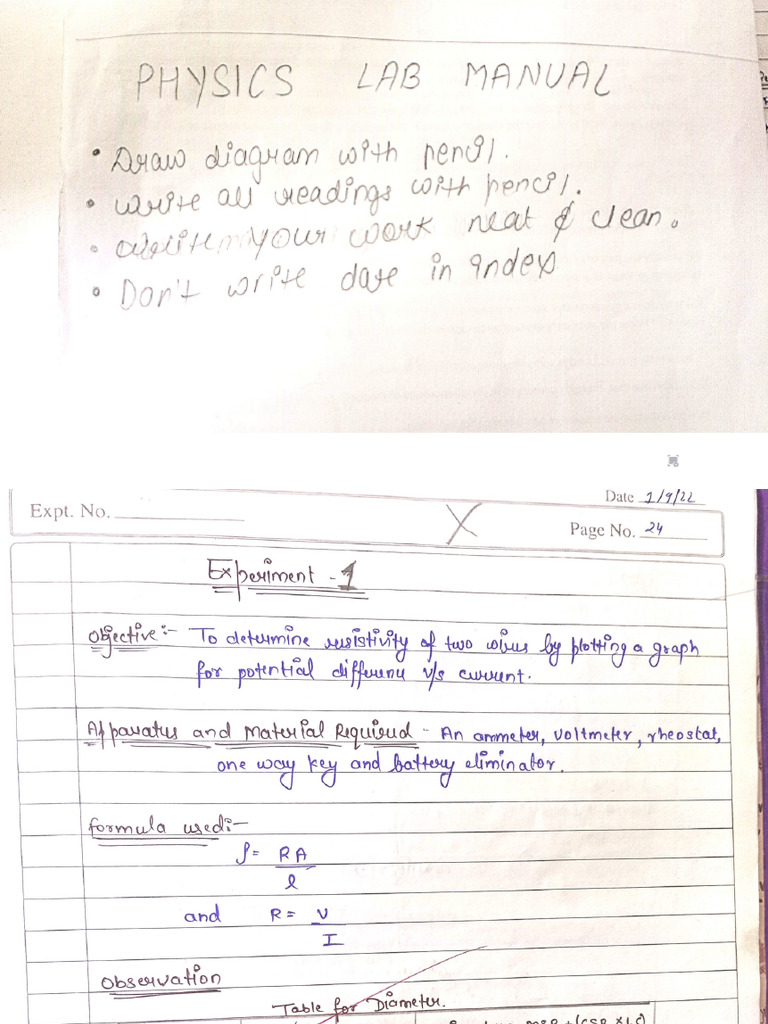 PHYSICS LAB MANUAL
• Draw diagram with pencil.
• Write all readings with pencil.
• your work neat & clean.
• Don't write date in index
Date 1/9/22
Expt. No.
Page No. 24
Experiment - 1
Objective:- To determine resistivity of two wires by plotting a graph
for potential difference v/s current.
Apparatus and Material Required - An ammeter, voltmeter, rheostat,
one way key and battery eliminator.
formula used:-
ρ = RA
l
and R = V
I
Observation
Table for Diameter.